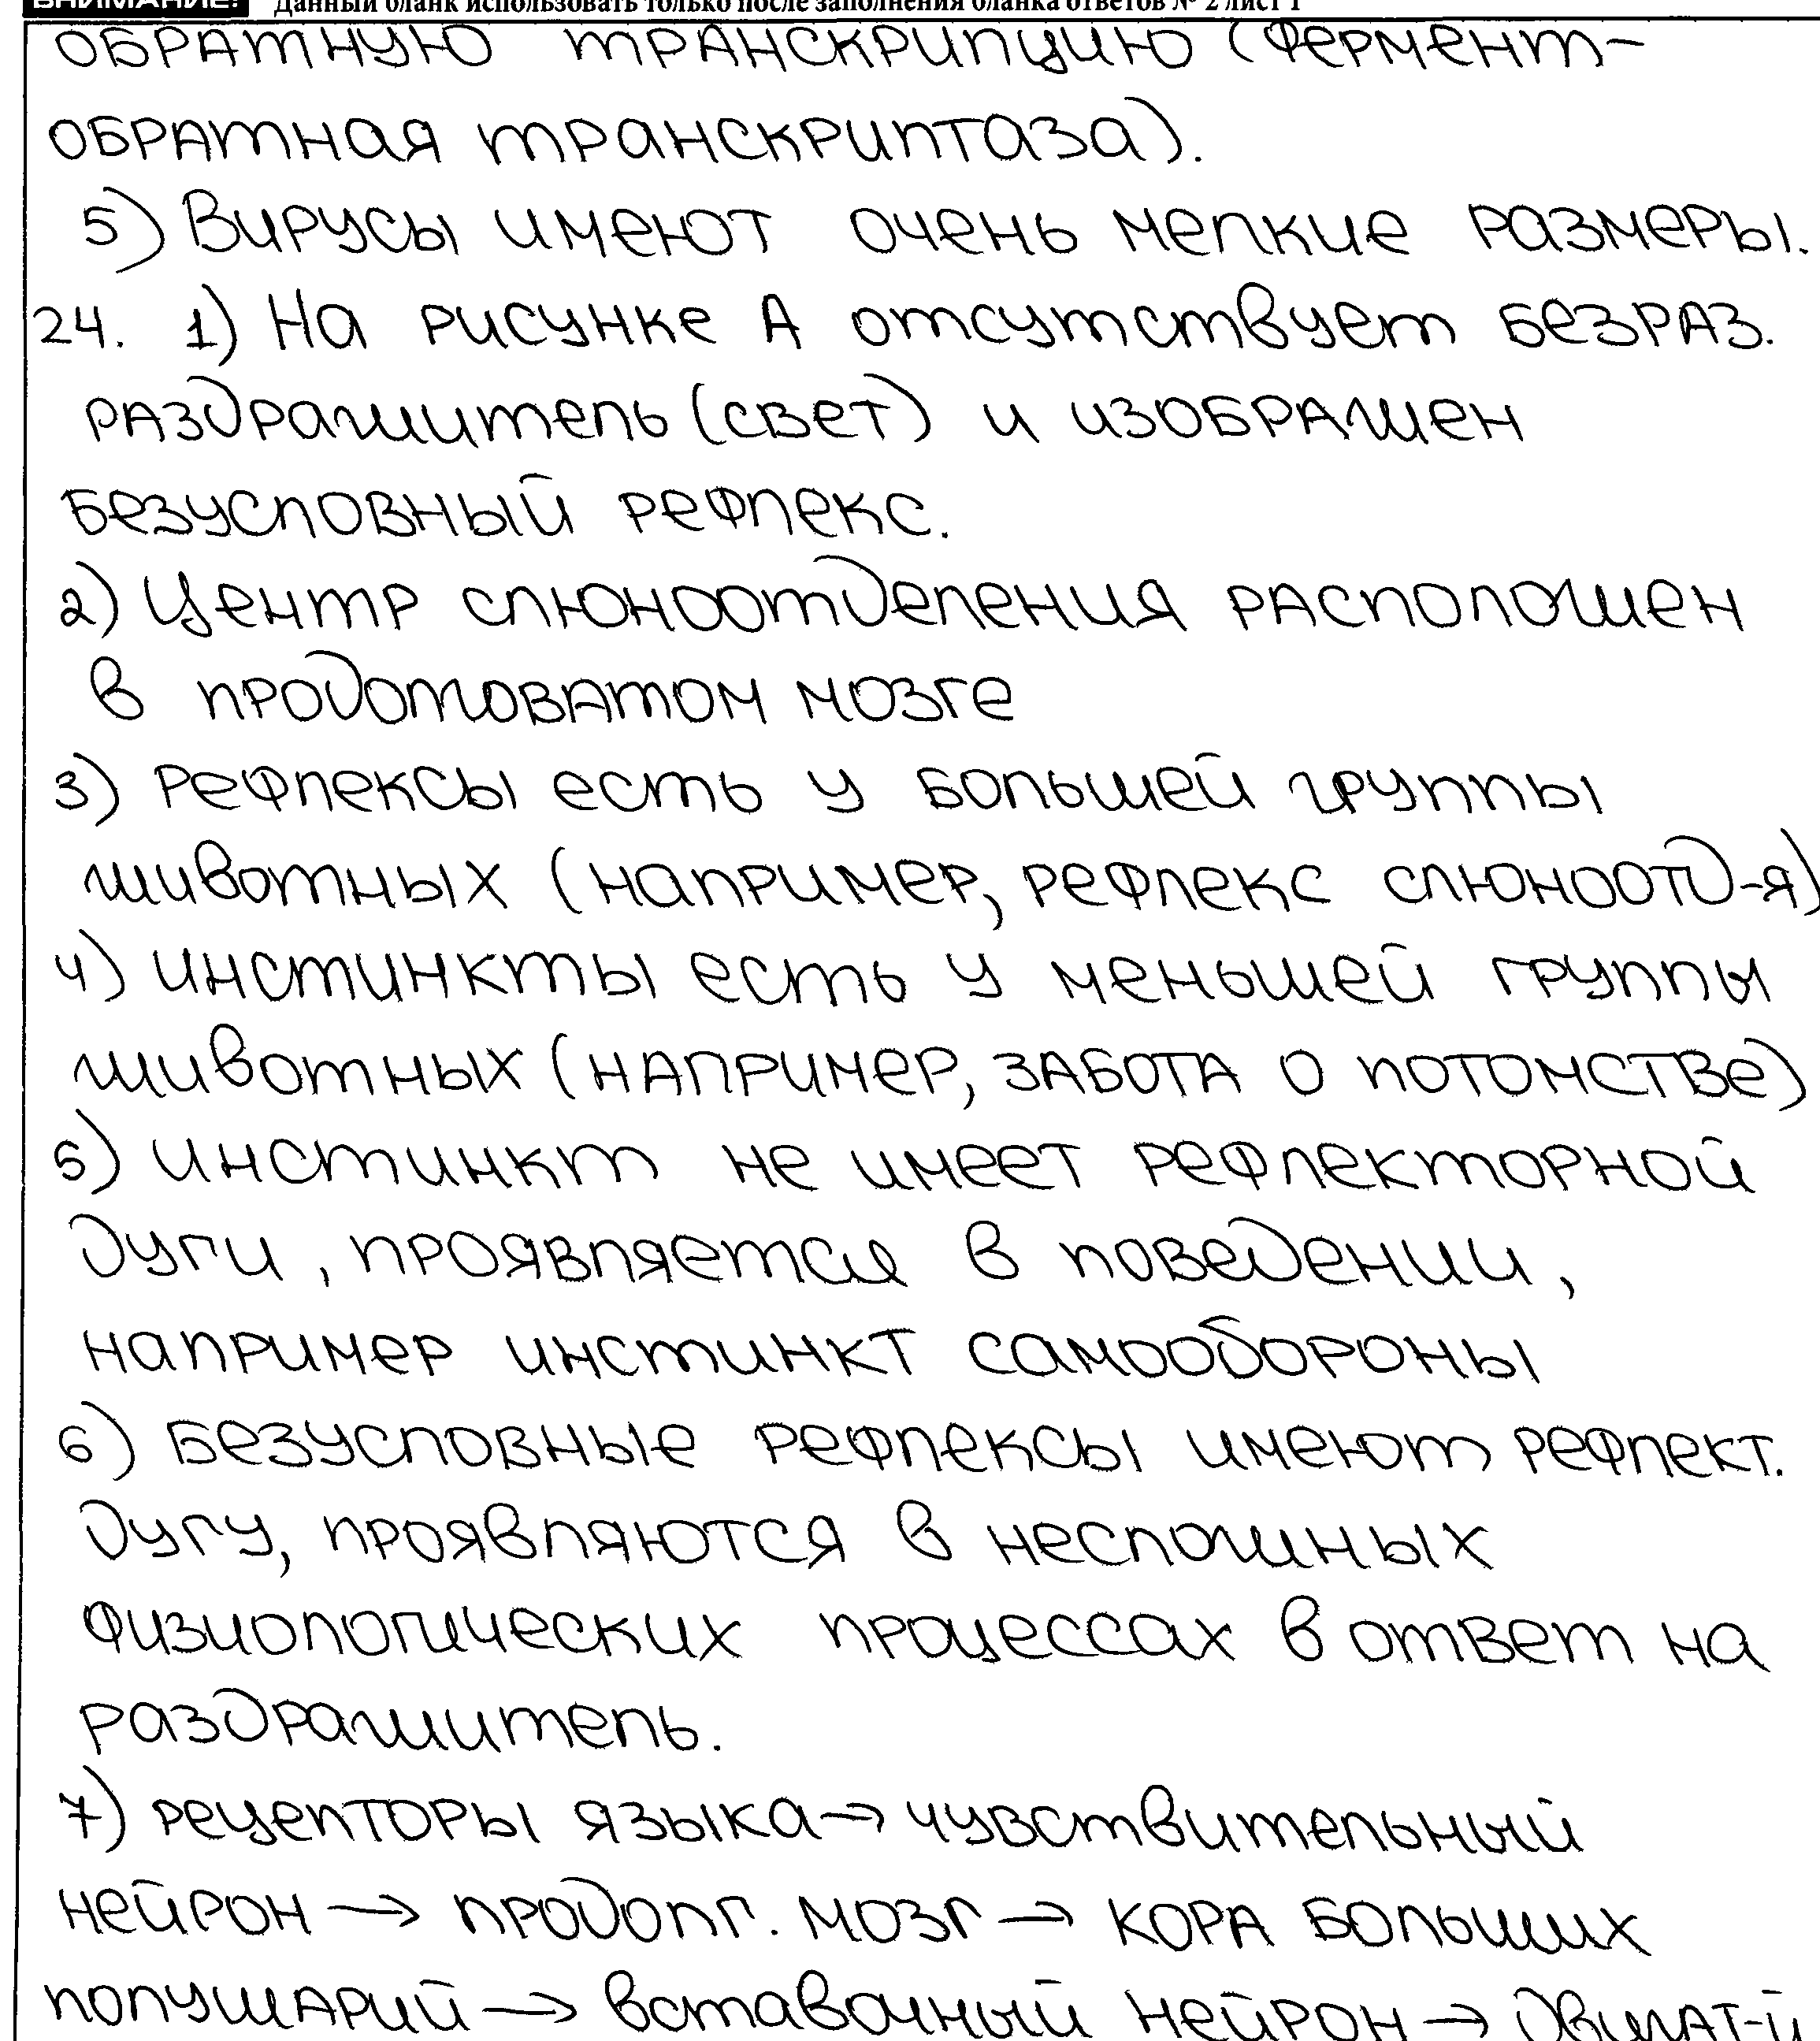 ВНИМАНИЕ! Данный бланк использовать только после заполнения бланка ответов № 2 лист 1
обратную транскрипцию (фермент-
обратная транскриптаза).
5) Вирусы имеют очень мелкие размеры.
24. 1) На рисунке А отсутствует безраз.
раздражитель (свет) и изображен
безусловный рефлекс.
2) Центр слюноотделения расположен
в продотоватом мозге
3) Рефлексы есть у большей группы
животных (например, рефлекс слюноотд-я)
4) инстинкты есть у меньшей группы
животных (например, забота о потомстве)
5) инстинкт не имеет рефлекторной
дуги, проявляется в поведении,
например инстинкт самообороны
6) Безусловные рефлексы имеют рефлект.
дугу, проявляются в несложных
физиологических процессах в ответ на
раздражитель.
7) рецепторы языка → чувствительный
нейрон → продолг. мозг → кора больших
полушарий → вставочный нейрон → двигат-й